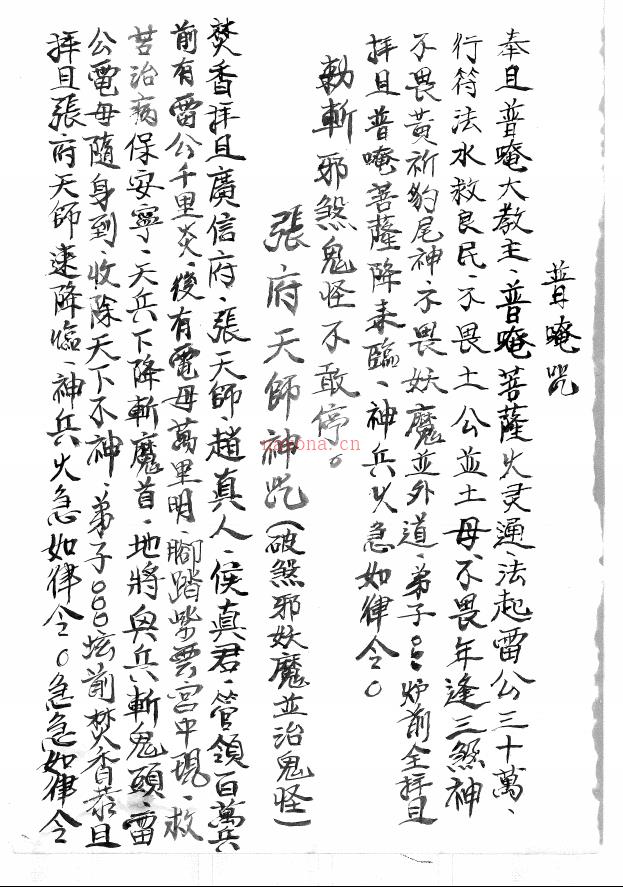 普唵咒
奉且普唵大教主、普唵菩薩火灵通、法起雷公三十萬、
行符法水救良民、不畏土公並土母、不畏年逢三煞神
不畏黃祈豹尾神、不畏妖魔並外道、弟子○○○炉前全拜且
拜且普唵菩薩降來臨、神兵火急如律令。
勅斬邪煞鬼怪不敢停。
張府天師神咒（破煞邪妖魔並治鬼怪）
焚香拜且廣信府、張天師趙真人、侯真君、管領百萬兵
前有雷公千里炎、後有電母萬里明、腳踏紫雲宮中現、救
苦治病保安寧、天兵下降斬魔首、地將與兵斬鬼頭、雷
公電母隨身到、收除天下不神、弟子○○○坛前焚香恭且
拜且張府天師速降臨、神兵火急如律令。急急如律令